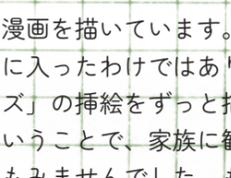 漫画を描いています。
に入ったわけではあ
ズ」の挿絵をずっと
いうことで、家族に
もみませんでした